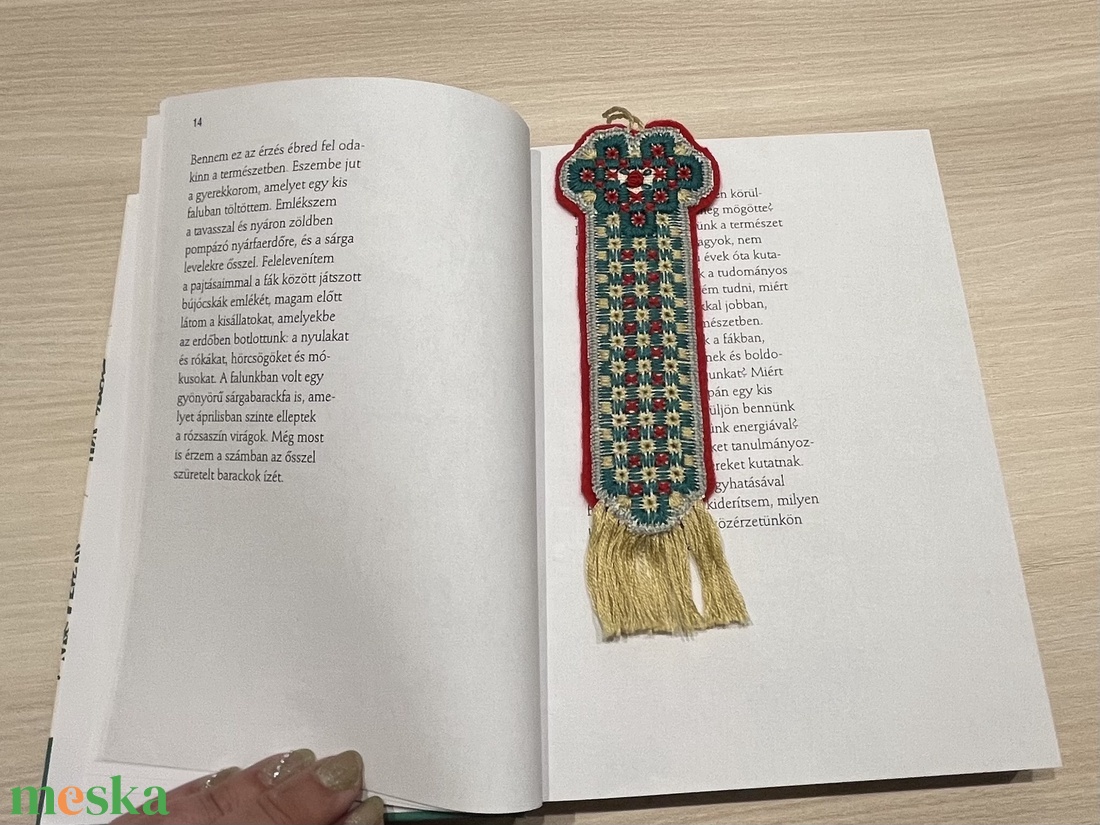 14
Bennem ez az érzés ébred fel oda-
kinn a természetben. Eszembe jut
a gyerekkorom, amelyet egy kis
faluban töltöttem. Emlékszem
a tavasszal és nyáron zöldben
pompázó nyárfaerdőre, és a sárga
levelekre ősszel. Felelevenítem
a pajtásaimmal a fák között játszott
bújócskák emlékét, magam előtt
látom a kisállatokat, amelyekbe
az erdőben botlottunk: a nyulakat
és rókákat, hörcsögöket és mó-
kusokat. A falunkban volt egy
gyönyörű sárgabarackfa is, ame-
lyet áprilisban szinte elleptek
a rózsaszín virágok. Még most
is érzem a számban az ősszel
szüretelt barackok ízét.
körül-
mögötte?
a természet
nem
évek óta kuta-
a tudományos
tudni, miért
jobban,
a fákban,
és boldo-
Miért
egy kis
bennünk
energiával?
tanulmányoz-
kutatnak.
kiderítsem, milyen
közérzetünkön
meska